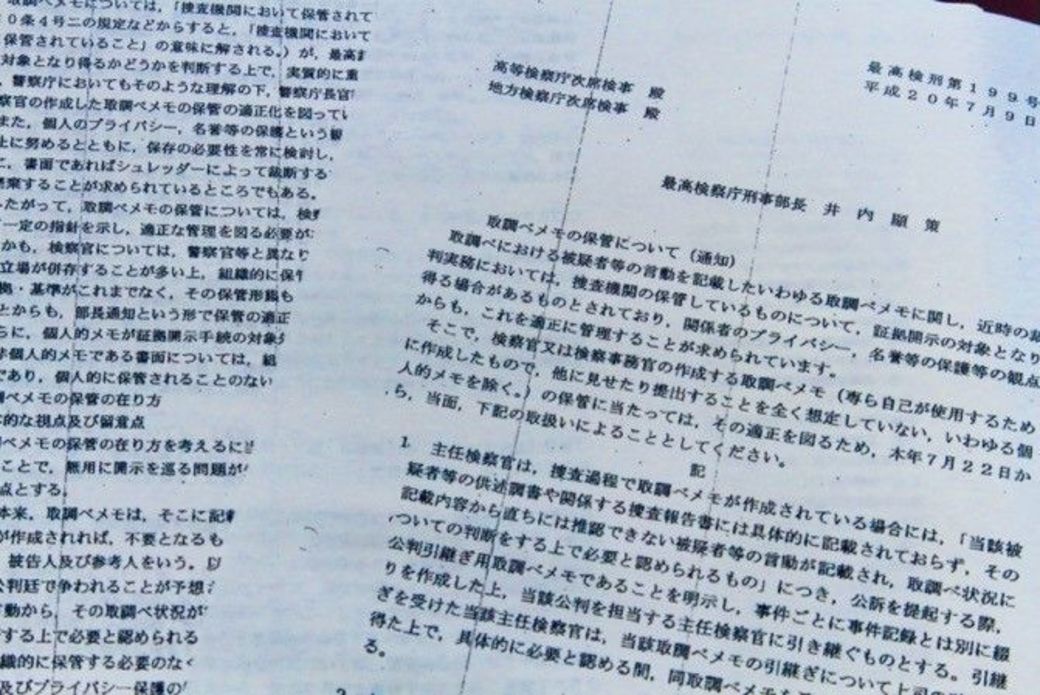 取調べメモについては，「捜査機関において保管されて
０条４号ニの規定などからすると，「捜査機関において
保管されていること」の意味に解される。）が，最高
対象となり得るかどうかを判断する上で，実質的に重
，警察庁においてもそのような理解の下，警察庁長官
察官の作成した取調べメモの保管の適正化を図ってい
また，個人のプライバシー，名誉等の保護という観
止に努めるとともに，保存の必要性を常に検討し，
に，書面であればシュレッダーによって裁断する
廃棄することが求められているところでもある。
したがって，取調べメモの保管については，検
一定の指針を示し，適正な管理を図る必要が
かも，検察官については，警察官等と異なり
立場が併存することが多い上，組織的に保
拠・基準がこれまでなく，その保管形態も
とからも，部長通知という形で保管の適正
らに，個人的メモが証拠開示手続の対象
非個人的メモである書面については，組
であり，個人的に保管されることのない
調べメモの保管の在り方
的な視点及び留意点
べメモの保管の在り方を考えるに
ことで，無用に開示を巡る問題が
点とする。
本来，取調べメモは，そこに記
が作成されれば，不要となるも
被告人及び参考人をいう。以
公判廷で争われることが予想
動から，その取調べ状況が
する上で必要と認められる
織的に保管する必要のなく
及びプライバシー保護の
最高検刑第１９９号
平成２０年７月９日
高等検察庁次席検事　殿
地方検察庁次席検事　殿
最高検察庁刑事部長　井　内　顯　策
取調べメモの保管について（通知）
取調べにおける被疑者等の言動を記載したいわゆる取調べメモに関し，近時の裁
判実務においては，捜査機関の保管しているものについて，証拠開示の対象となり
得る場合があるものとされており，関係者のプライバシー，名誉等の保護等の観点
からも，これを適正に管理することが求められています。
そこで，検察官又は検察事務官の作成する取調べメモ（専ら自己が使用するため
に作成したもので，他に見せたり提出することを全く想定していない，いわゆる個
人的メモを除く。）の保管に当たっては，その適正を図るため，本年７月２２日か
ら，当面，下記の取扱いによることとしてください。
記
１　主任検察官は，捜査過程で取調べメモが作成されている場合には，「当該被
疑者等の供述調書や関係する捜査報告書には具体的に記載されておらず，その
記載内容から直ちには推認できない被疑者等の言動が記載され，取調べ状況に
ついての判断をする上で必要と認められるもの」につき，公訴を提起する際，
公判引継ぎ用取調べメモであることを明示し，事件ごとに事件記録とは別に綴
りを作成した上，当該公判を担当する主任検察官に引き継ぐものとする。引継
ぎを受けた当該主任検察官は，当該取調べメモの引継ぎについて上司
得た上で，具体的に必要と認める間，同取調べメモを
る。
２